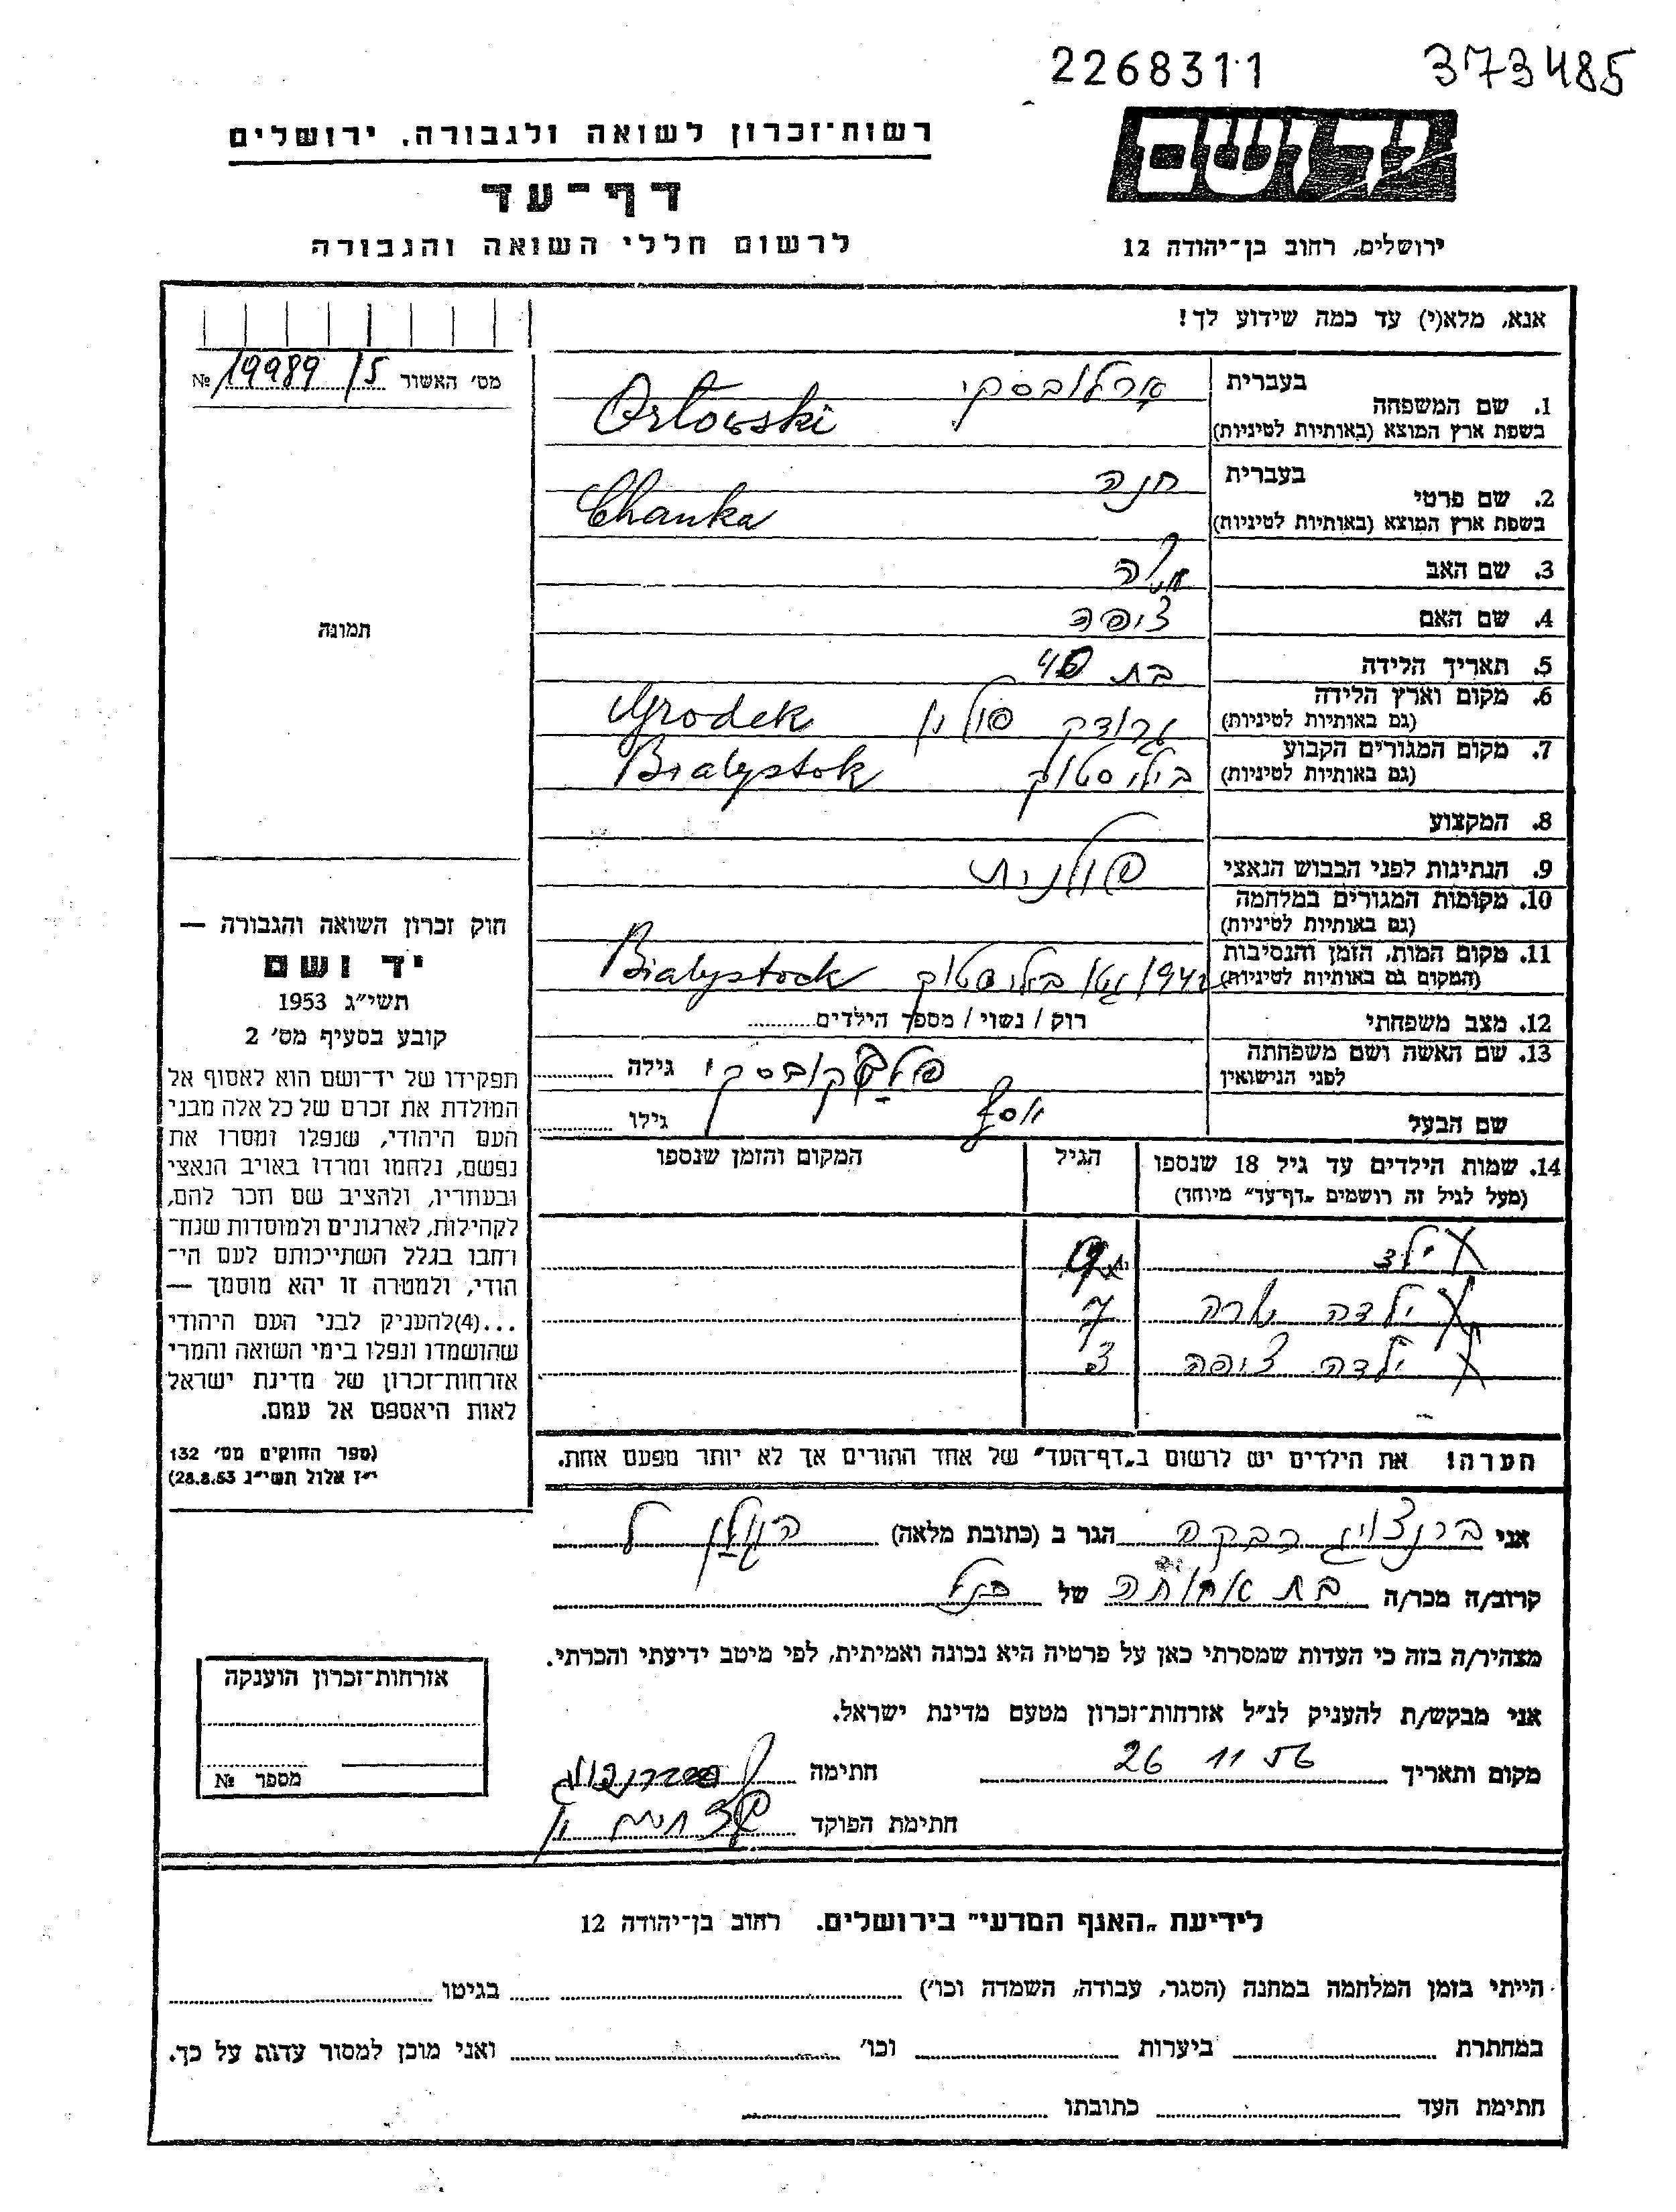 2268311 373485
יד ושם
רשות־זכרון לשואה ולגבורה, ירושלים
דף־עד
לרשום חללי השואה והגבורה
ירושלים, רחוב בן־יהודה 12
אנא, מלא(י) עד כמה שידוע לך!
מס׳ האשור 19989/5 №
1. שם המשפחה
בעברית אָרלובסקי
בשפת ארץ המוצא (באותיות לטיניות) Orłowski
2. שם פרטי
בעברית חנה
בשפת ארץ המוצא (באותיות לטיניות) Chanka
3. שם האב
4. שם האם ציפה
5. תאריך הלידה בת 40
6. מקום וארץ הלידה
(גם באותיות לטיניות) גרודק פולין Grodek
7. מקום המגורים הקבוע
(גם באותיות לטיניות) ביליסטוק Bialystok
8. המקצוע
9. הנתינות לפני הכבוש הנאצי פולנית
10. מקומות המגורים במלחמה
(גם באותיות לטיניות)
11. מקום המות, הזמן והנסיבות
(המקום גם באותיות לטיניות) 1942 גטו ביליסטוק Bialystock
12. מצב משפחתי רוק / נשוי / מספר הילדים
13. שם האשה ושם משפחתה
לפני הנישואין גילה
שם הבעל יוסף גילו
14. שמות הילדים עד גיל 18 שנספו הגיל המקום והזמן שנספו
(מעל לגיל זה רושמים „דף־עד״ מיוחד)
ילד
ילדה שרה 7
ילדה ציפה 3
הערה! את הילדים יש לרשום ב„דף־העד״ של אחד ההורים אך לא יותר מפעם אחת.
תמונה
חוק זכרון השואה והגבורה —
יד ושם
תשי״ג 1953
קובע בסעיף מס׳ 2
תפקידו של יד־ושם הוא לאסוף אל
המולדת את זכרם של כל אלה מבני
העם היהודי, שנפלו ומסרו את
נפשם, נלחמו ומרדו באויב הנאצי
ובעוזריו, ולהציב שם וזכר להם,
לקהילות, לארגונים ולמוסדות שנח־
רבו בגלל השתייכותם לעם הי־
הודי, ולמטרה זו יהא מוסמך —
...(4)להעניק לבני העם היהודי
שהושמדו ונפלו בימי השואה והמרי
אזרחות־זכרון של מדינת ישראל
לאות היאספם אל עמם.
(ספר החוקים מס׳ 132
י״ז אלול תשי״ג 28.8.53)
אני ברנצויג רבקה הגר ב (כתובת מלאה)
קרוב/ה מכר/ה בת אחותה של הנ״ל
מצהיר/ה בזה כי העדות שמסרתי כאן על פרטיה היא נכונה ואמיתית, לפי מיטב ידיעתי והכרתי.
אני מבקש/ת להעניק לנ״ל אזרחות־זכרון מטעם מדינת ישראל.
מקום ותאריך 26 11 56 חתימה
חתימת הפוקד
אזרחות־זכרון הוענקה
מספר №
לידיעת „האגף המדעי״ בירושלים. רחוב בן־יהודה 12
הייתי בזמן המלחמה במחנה (הסגר, עבודה, השמדה וכו׳) בגיטו
במחתרת ביערות וכו׳ ואני מוכן למסור עדות על כך.
חתימת העד כתובתו